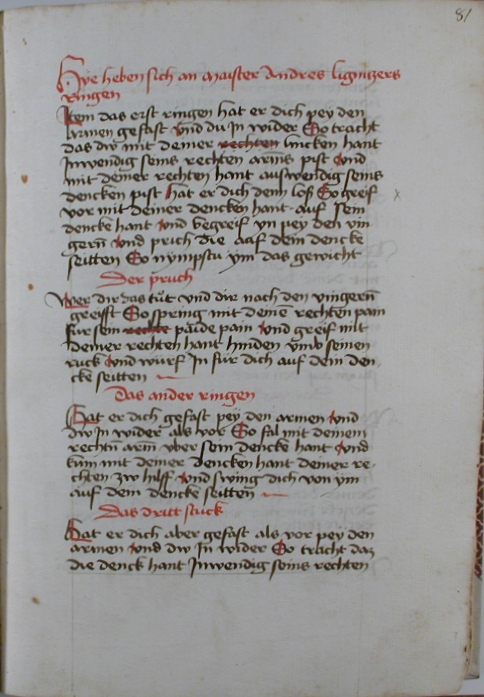 81
Hye heben sich an maister Andres ligniczers
ringen
Item das erst ringen hat er dich pey den
armen gefast vnd du In wider So tracht
das dw mit deiner rechten lincken hant
Inwendig seins rechten arms pist vnd
mit deiner rechten hant auswendig seins
dencken pist hat er dich denn loss So greif
vor mit deiner dencken hant auf sein
dencke hant vnd begreif yn pey den vin-
gern vnd prich die auf dein dencke
seitten So nympstu ym das gewicht
Der pruch
Wer dir das tut vnd dir nach den vingern
greifft So spring mit deine rechten pain
fur sein rechte paide pain vnd greif mit
deiner rechten hant hinden vmb seinen
ruck vnd wurf In fur dich auf dein den-
cke seitten
Das ander ringen
Hat er dich gefast pey den armen vnd
dw In wider als vor So fal mit deinem
rechtn arm vber sein dencke hant vnd
kum mit deiner dencken hant deiner re-
chten zw hilff vnd swing dich von ym
auf dein dencke seitten
Das dritt stuck
Hat er dich aber gefast als vor pey den
armen vnd dw In wider So tracht daz
die denck hant Inwendig seins rechten